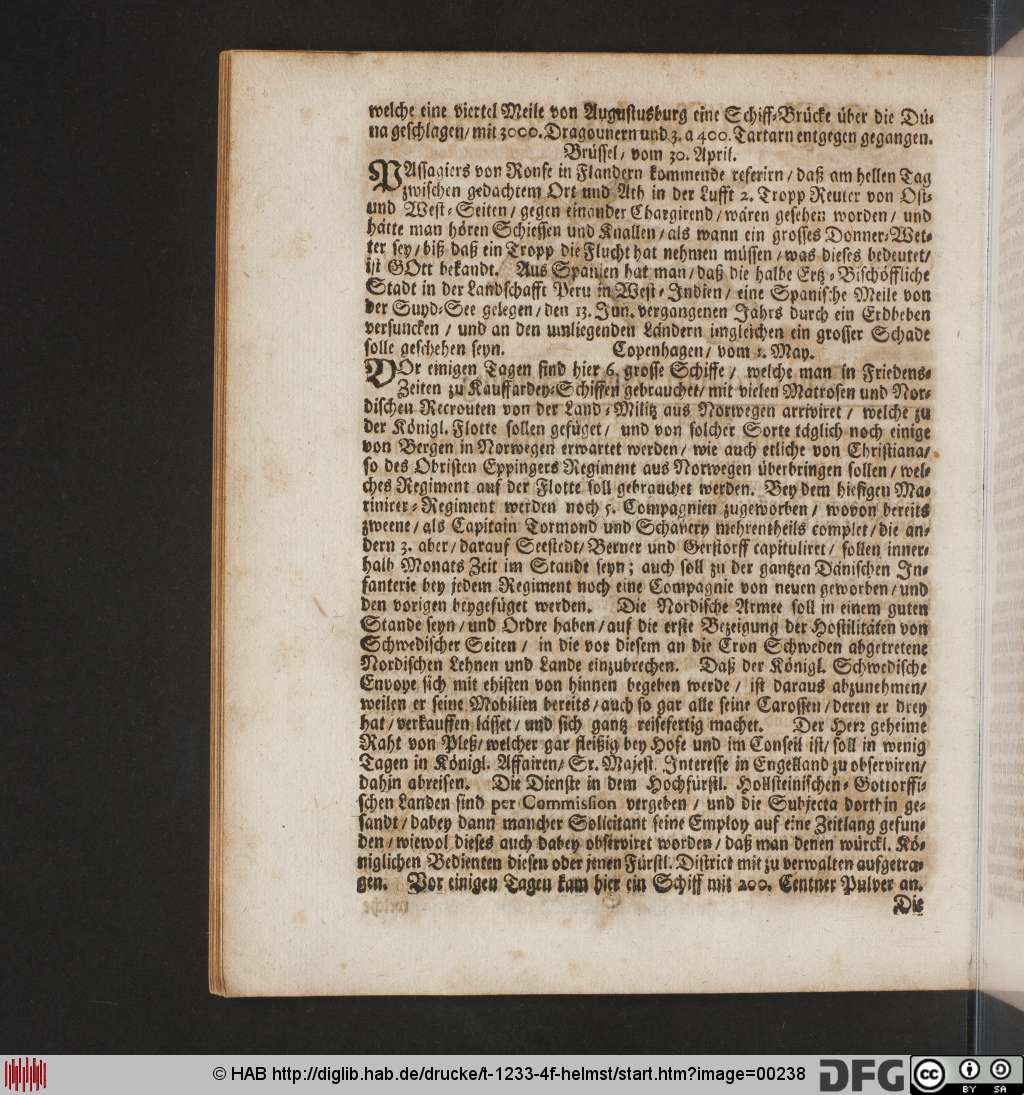 welche eine viertel Meile von Augustusburg eine Schiff-Brücke über die Dü-
na geschlagen/ mit 3000. Dragounern und 3. a 400. Tartarn entgegen gegangen.
Brüssel/ vom 30. April.
PAssagiers von Ronse in Flandern kommende referirn/ daß am hellen Tag
zwischen gedachtem Ort und Ath in der Lufft 2. Tropp Reuter von Ost-
und West-Seiten/ gegen einander Chargirend/ wären gesehen worden/ und
hätte man hören Schiessen und Knallen/ als wann ein grosses Donner-Wet-
ter sey/ biß daß ein Tropp die Flucht hat nehmen müssen/ was dieses bedeutet/
ist GOtt bekandt. Aus Spanien hat man/ daß die halbe Ertz-Bischöffliche
Stadt in der Landschafft Peru in West-Indien/ eine Spanische Meile von
der Suyd-See gelegen/ den 13. Jun. vergangenen Jahrs durch ein Erdbeben
versuncken/ und an den umliegenden Ländern imgleichen ein grosser Schade
solle geschehen seyn. Copenhagen/ vom 1. May.
VOr einigen Tagen sind hier 6. grosse Schiffe/ welche man in Friedens-
Zeiten zu Kauffardey-Schiffen gebrauchet/ mit vielen Matrosen und Nor-
dischen Recrouten von der Land-Militz aus Norwegen arriviret/ welche zu
der Königl. Flotte sollen gefüget/ und von solcher Sorte täglich noch einige
von Bergen in Norwegen erwartet werden/ wie auch etliche von Christiana/
so des Obristen Eppingers Regiment aus Norwegen überbringen sollen/ wel-
ches Regiment auf der Flotte soll gebrauchet werden. Bey dem hiesigen Ma-
rinirer-Regiment werden noch 5. Compagnien zugeworben/ wovon bereits
zweene/ als Capitain Tormond und Schavery mehrentheils complet/ die an-
dern 3. aber/ darauf Seestedt/ Berner und Gerstorff capituliret/ sollen inner-
halb Monats Zeit im Stande seyn; auch soll zu der gantzen Dänischen In-
fanterie bey jedem Regiment noch eine Compagnie von neuen geworben/ und
den vorigen beygefüget werden. Die Nordische Armee soll in einem guten
Stande seyn/ und Ordre haben/ auf die erste Bezeigung der Hostilitäten von
Schwedischer Seiten/ in die vor diesem an die Cron Schweden abgetretene
Nordischen Lehnen und Lande einzubrechen. Daß der Königl. Schwedische
Envoye sich mit ehisten von hinnen begeben werde/ ist daraus abzunehmen/
weilen er seine Mobilien bereits/ auch so gar alle seine Carossen/ deren er drey
hat/ verkauffen lässet/ und sich gantz reisefertig machet. Der Herr geheime
Raht von Pleß/ welcher gar fleißig bey Hofe und im Conseil ist/ soll in wenig
Tagen in Königl. Affairen/ Sr. Majest. Interesse in Engelland zu observiren/
dahin abreisen. Die Dienste in dem Hochfürstl. Hollsteinischen-Gottorffi-
schen Landen sind per Commission vergeben/ und die Subjecta dorthin ge-
sandt/ dabey dann mancher Solicitant seine Employ auf eine Zeitlang gefun-
den/ wiewol dieses auch dabey observiret worden/ daß man denen würckl. Kö-
niglichen Bedienten diesen oder jenen Fürstl. District mit zu verwalten aufgetra-
gen. Vor einigen Tagen kam hier ein Schiff mit 200. Centner Pulver an.
Die
© HAB http://diglib.hab.de/drucke/t-1233-4f-helmst/start.htm?image=00238
DFG
cc BY SA